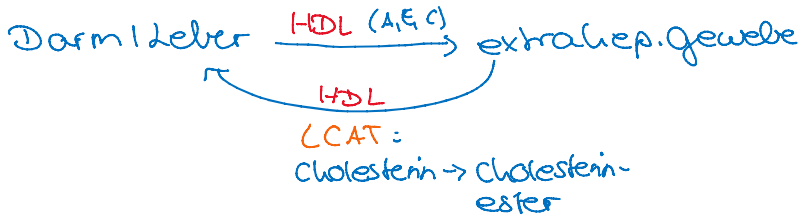 Darm/Leber HDL (A,E,C) extrahep. Gewebe
HDL
LCAT:
Cholesterin → Cholesterin-
ester